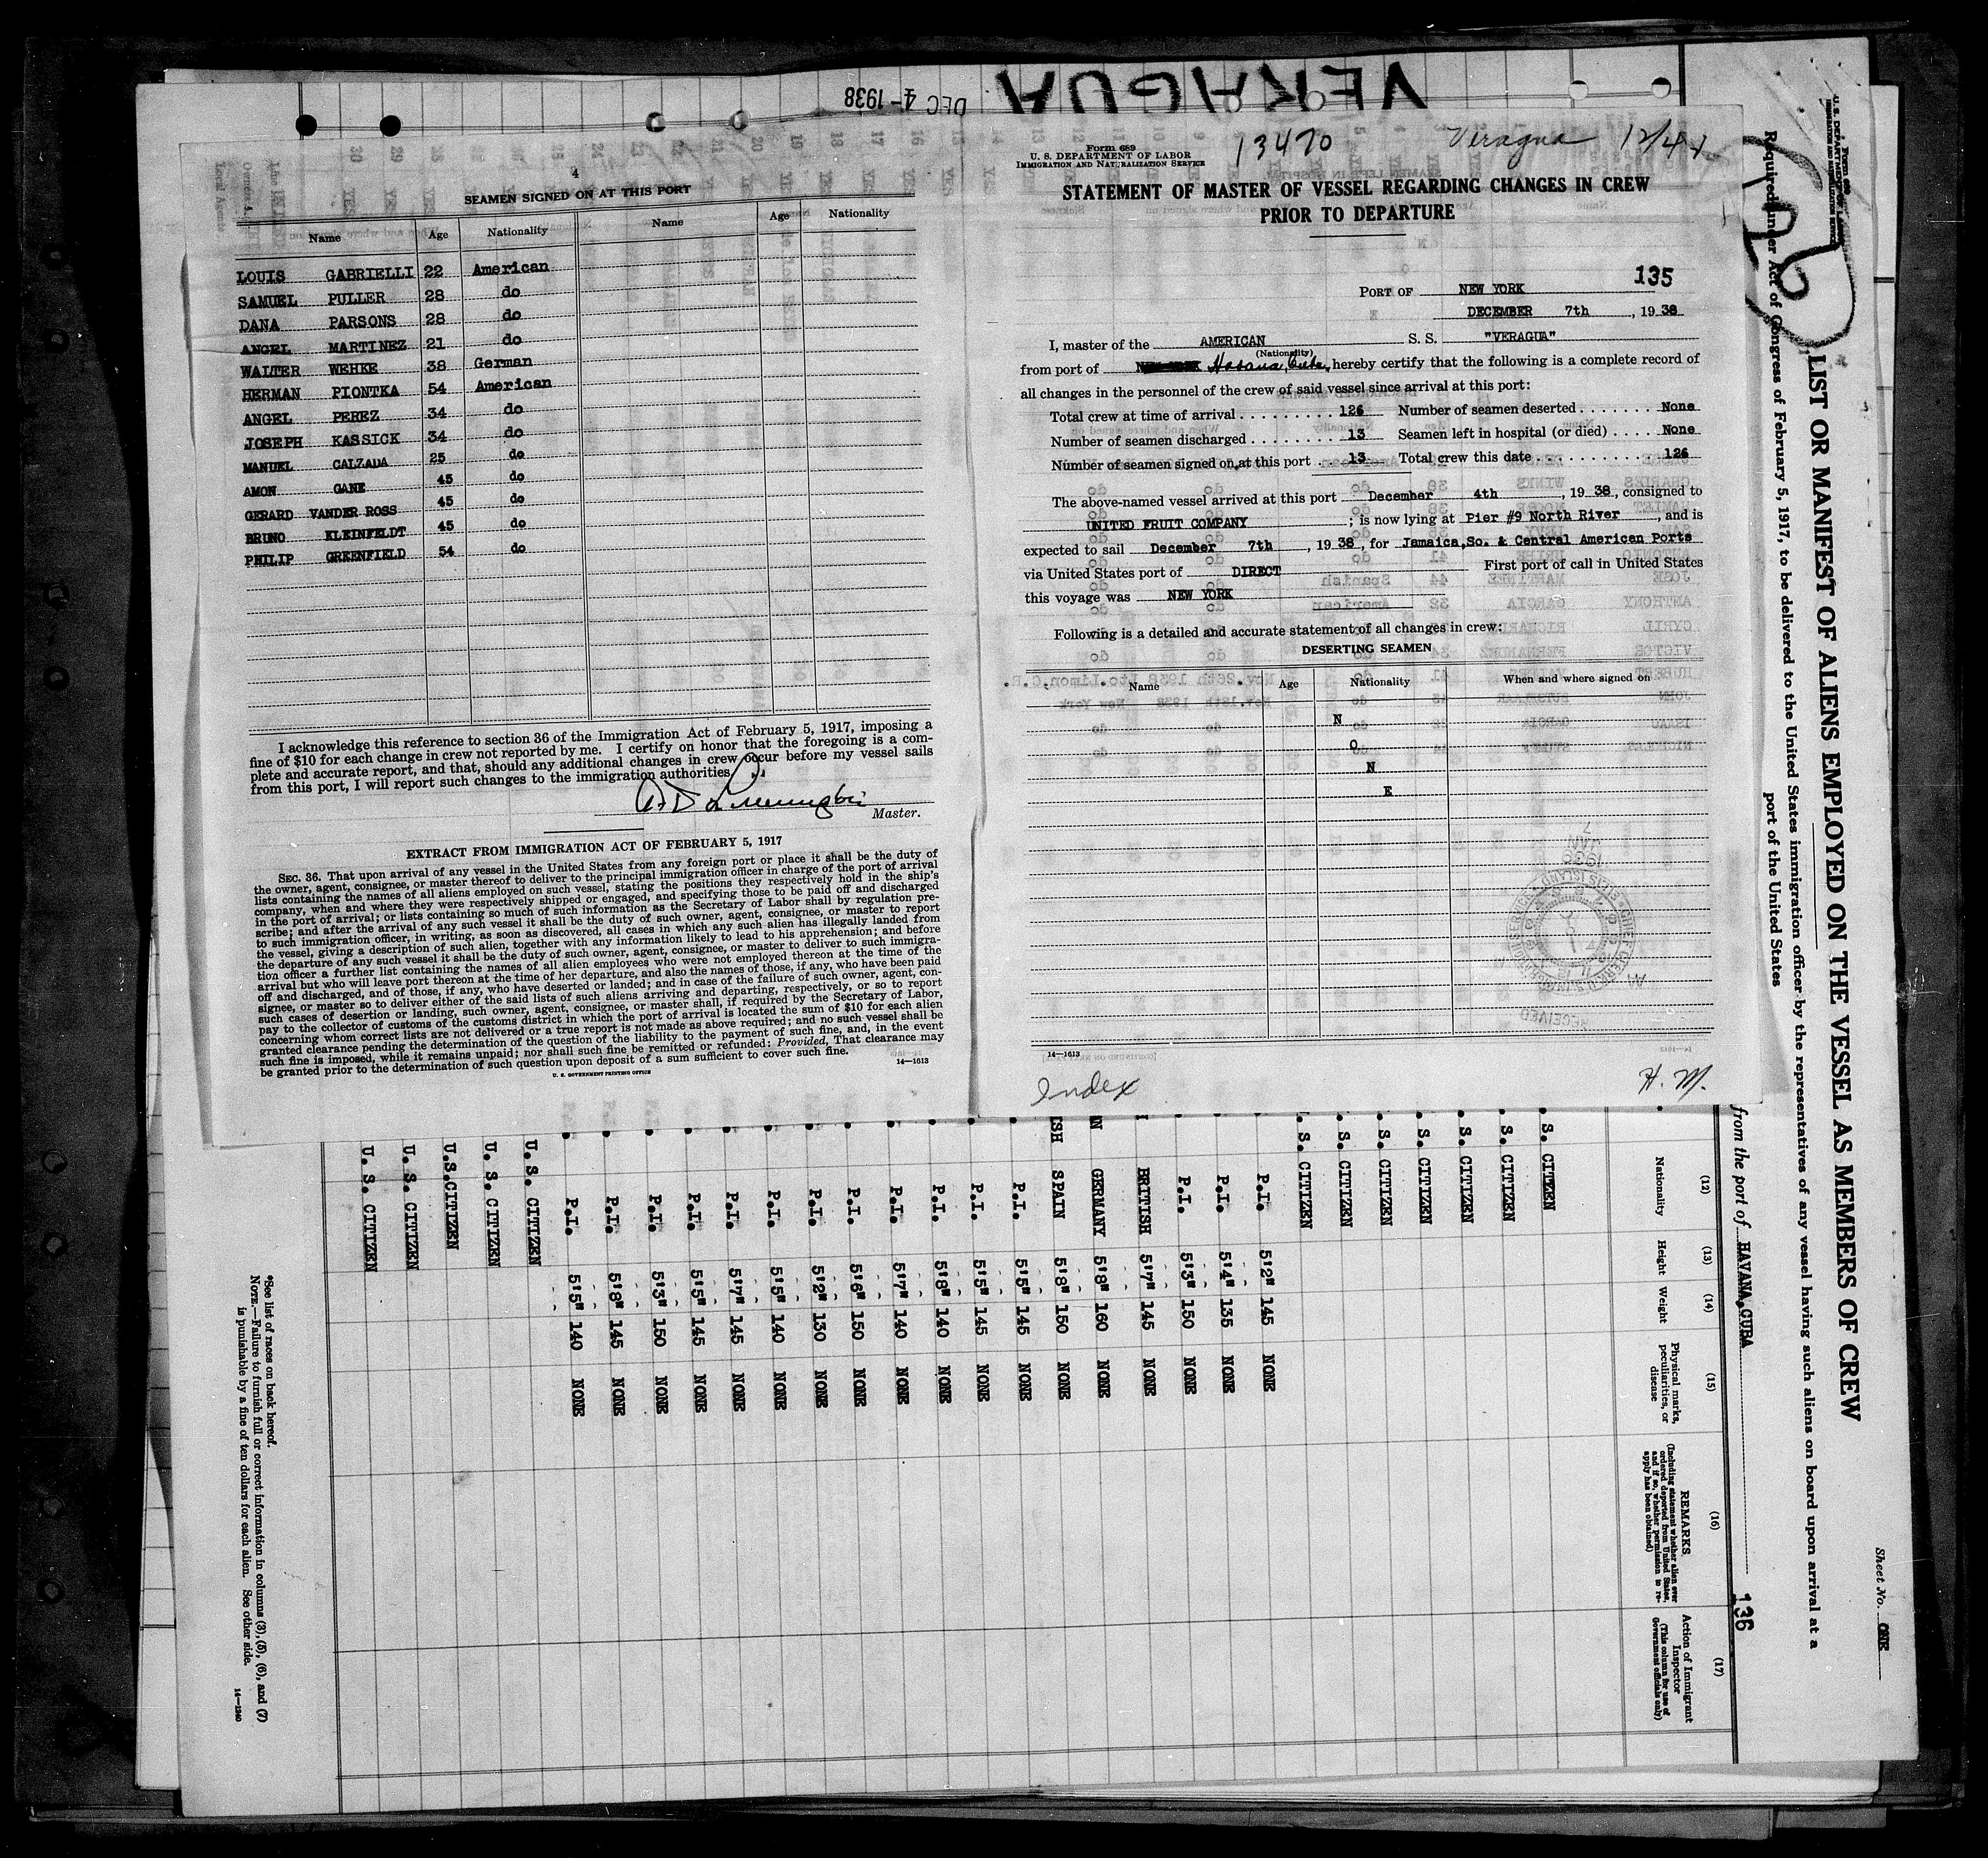 VERAGUA
DEC 4-1938
4
SEAMEN SIGNED ON AT THIS PORT
Name Age Nationality Name Age Nationality
LOUIS GABRIELLI 22 American
SAMUEL PULLER 28 do
DANA PARSONS 28 do
ANGEL MARTINEZ 21 do
WALTER WEHKE 38 German
HERMAN PIONTKA 54 American
ANGEL PEREZ 34 do
JOSEPH KASSICK 34 do
MANUEL CALZADA 25 do
AMON GANE 45 do
GERARD VANDER ROSS 45 do
BRUNO KLEINFELDT 45 do
PHILIP GREENFIELD 54 do
I acknowledge this reference to section 36 of the Immigration Act of February 5, 1917, imposing a
fine of $10 for each change in crew not reported by me. I certify on honor that the foregoing is a com-
plete and accurate report, and that, should any additional changes in crew occur before my vessel sails
from this port, I will report such changes to the immigration authorities.
Master.
EXTRACT FROM IMMIGRATION ACT OF FEBRUARY 5, 1917
SEC. 36. That upon arrival of any vessel in the United States from any foreign port or place it shall be the duty of
the owner, agent, consignee, or master thereof to deliver to the principal immigration officer in charge of the port of arrival
lists containing the names of all aliens employed on such vessel, stating the positions they respectively hold in the ship's
company, when and where they were respectively shipped or engaged, and specifying those to be paid off and discharged
in the port of arrival; or lists containing so much of such information as the Secretary of Labor shall by regulation pre-
scribe; and after the arrival of any such vessel it shall be the duty of such owner, agent, consignee, or master to report
to such immigration officer, in writing, as soon as discovered, all cases in which any such alien has illegally landed from
the vessel, giving a description of such alien, together with any information likely to lead to his apprehension; and before
the departure of any such vessel it shall be the duty of such owner, agent, consignee, or master to deliver to such immigra-
tion officer a further list containing the names of all alien employees who were not employed thereon at the time of the
arrival but who will leave port thereon at the time of her departure, and also the names of those, if any, who have been paid
off and discharged, and of those, if any, who have deserted or landed; and in case of the failure of such owner, agent, con-
signee, or master so to deliver either of the said lists of such aliens arriving and departing, respectively, or so to report
such cases of desertion or landing, such owner, agent, consignee, or master shall, if required by the Secretary of Labor,
pay to the collector of customs of the customs district in which the port of arrival is located the sum of $10 for each alien
concerning whom correct lists are not delivered or a true report is not made as above required; and no such vessel shall be
granted clearance pending the determination of the question of the liability to the payment of such fine, and, in the event
such fine is imposed, while it remains unpaid; nor shall such fine be remitted or refunded: Provided, That clearance may
be granted prior to the determination of such question upon deposit of a sum sufficient to cover such fine.
14—1613
U. S. GOVERNMENT PRINTING OFFICE
Form 689
U. S. DEPARTMENT OF LABOR
IMMIGRATION AND NATURALIZATION SERVICE
13470 Veragua 12/4
STATEMENT OF MASTER OF VESSEL REGARDING CHANGES IN CREW
PRIOR TO DEPARTURE
135
PORT OF NEW YORK
DECEMBER 7th, 1938
I, master of the AMERICAN S. S. "VERAGUA"
(Nationality)
from port of Havana, Cuba, hereby certify that the following is a complete record of
all changes in the personnel of the crew of said vessel since arrival at this port:
Total crew at time of arrival 126 Number of seamen deserted None
Number of seamen discharged 13 Seamen left in hospital (or died) None
Number of seamen signed on at this port 13 Total crew this date 126
The above-named vessel arrived at this port December 4th, 1938, consigned to
UNITED FRUIT COMPANY; is now lying at Pier #9 North River, and is
expected to sail December 7th, 1938, for Jamaica, So. & Central American Ports
via United States port of DIRECT First port of call in United States
this voyage was NEW YORK
Following is a detailed and accurate statement of all changes in crew:
DESERTING SEAMEN
Name Age Nationality When and where signed on
N
O
N
E
14—1613
Index
H. M.
Form 689
U. S. DEPARTMENT OF LABOR
IMMIGRATION AND NATURALIZATION SERVICE
Sheet No. ONE
LIST OR MANIFEST OF ALIENS EMPLOYED ON THE VESSEL AS MEMBERS OF CREW
Required under Act of Congress of February 5, 1917, to be delivered to the United States immigration officer by the representatives of any vessel having such aliens on board upon arrival at a
port of the United States
from the port of HAVANA, CUBA
136
(12) (13) (14) (15) (16) (17)
Nationality Height Weight Physical marks, peculiarities, or disease REMARKS (Including statement whether alien ever ordered deported from United States, and if so, whether permission to re-apply has been obtained) Action of Immigrant Inspector (This column for use of Government officials only)
. S. CITZEN
. S. CITIZEN
. S. CITIZEN
. S. CITIZEN
. S. CITIZEN
. S. CITIZEN
. S. CITIZEN
P.I. 5'2" 145 NONE
P.I. 5'4" 135 NONE
P.I. 5'3" 150 NONE
BRITISH 5'7" 145 NONE
GERMANY 5'8" 160 NONE
SPAIN 5'8" 150 NONE
P.I. 5'5" 145 NONE
P.I. 5'5" 145 NONE
P.I. 5'8" 140 NONE
P.I. 5'7" 140 NONE
P.I. 5'6" 150 NONE
P.I. 5'2" 130 NONE
P.I. 5'5" 140 NONE
P.I. 5'7" 145 NONE
P.I. 5'5" 145 NONE
P.I. 5'3" 150 NONE
P.I. 5'8" 145 NONE
P.I. 5'5" 140 NONE
U. S. CITIZEN
U. S. CITIZEN
U.S.CITIZEN
U. S. CITIZEN
U. S. CITIZEN
*See list of races on back hereof.
NOTE.—Failure to furnish full or correct information in columns (3), (5), (6), and (7)
is punishable by a fine of ten dollars for each alien. See other side.
14—1240